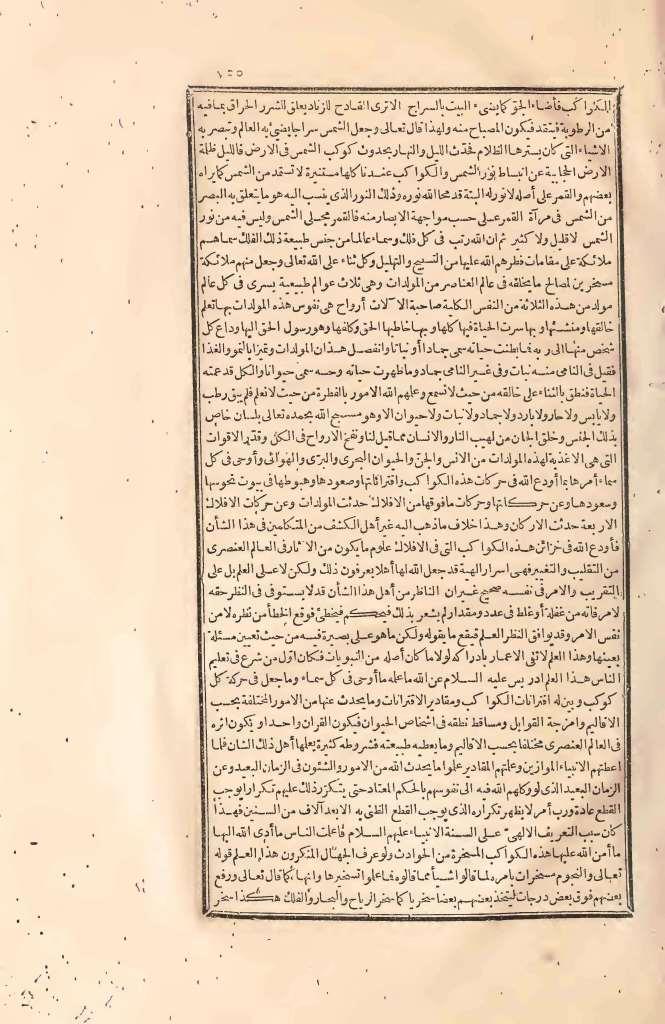 ١٥٥
الكواكب فأضاء الجو كما يضىء البيت بالسراج الاترى القادح للزناد يعلق للشرر الحراق بما فيه
من الرطوبة فيتقد فيكون المصباح منه ولهذا قال تعالى وجعل الشمس سراجا يضىء به العالم وتبصر به
الاشياء التى كان يسترها الظلام فحدث الليل والنهار بحدوث كوكب الشمس فى الارض فالليل ظلمة
الارض الحجابية عن انبساط نور الشمس والكواكب عندنا كلها مستنيرة لا تستمد من الشمس كما يراه
بعضهم والقمر على أصله لا نور له البتة قد محا الله نوره وذلك النور الذى ينسب اليه هو ما يتعلق به البصر
من الشمس فى مرآة القمر على حسب مواجهة الابصار منه فالقمر مجلى الشمس وليس فيه من نور
الشمس لا قليل ولا كثير ثم ان الله رتب فى كل فلك وسماء عالما من جنس طبيعة ذلك الفلك سماهم
ملائكة على مقامات فطرهم الله عليها من التسبيح والتهليل وكل ثناء على الله تعالى وجعل منهم ملائكة
مسخرين لمصالح ما يخلقه فى عالم العناصر من المولدات وهى ثلاث عوالم طبيعية يسرى فى كل عالم
مولد من هذه الثلاثة من النفس الكلية صاحبة الآلات أرواح هى نفوس هذه المولدات بها تعلم
خالقها ومنشئها وبها سرت الحياة فيها كلها وبها خاطبها الحق وكلفها وهو رسول الحق اليها وداع كل
شخص منها الى ربه فما بطنت حياته سمى جمادا أو نباتا وانفصل هذان المولدات وتميزا بالنمو والغذا
فقيل فى النامى منه نبات وفى غير النامى جماد وما ظهرت حياته وحسه سمى حيوانا والكل قد عمته
الحياة فنطق بالثناء على خالقه من حيث لا نسمع وعلمهم الله الامور بالفطرة من حيث لا نعلم فلم يبق رطب
ولا يابس ولا حار ولا بارد ولا جماد ولا نبات ولا حيوان الا وهو مسبح الله بحمده تعالى بلسان خاص
بذلك الجنس وخلق الجان من لهيب النار والانسان مما قيل لنا ونفخ الارواح فى الكل وقدر الاقوات
التى هى الاغذية لهذه المولدات من الانس والجن والحيوان البحرى والبرى والهوائى وأوحى فى كل
سماء أمرها بما أودع الله فى حركات هذه الكواكب واقتراناتها وصعودها وهبوطها فى بيوت نحوسها
وسعودها وعن حركاتها وحركات ما فوقها من الافلاك حدثت المولدات وعن حركات الافلاك
الاربعة حدثت الاركان وهذا خلاف ما ذهب اليه غير أهل الكشف من المتكلمين فى هذا الشأن
فأودع الله فى خزائن هذه الكواكب التى فى الافلاك علوم ما يكون من الآثار فى العالم العنصرى
من التقليب والتغيير فهى اسرار الهية قد جعل الله لها أهلا يعرفون ذلك ولكن لا على العلم بل على
التقريب والامر فى نفسه صحيح غير ان الناظر من أهل هذا الشأن قد لا يستوفى فى النظر حقه
لامر فاته من غفلة أو غلط فى عدد ومقدار لم يشعر بذلك فيحكم فيخطئ فوقع الخطأ من نظره لا من
نفس الامر وقد يوافق النظر العلم فيقع ما يقوله ولكن ما هو على بصيرة فيه من حيث تعيين مسئلة
بعينها وهذا العلم لا تفى الاعمار بادراكه لولا ما كان أصله من النبوات فكان أول من شرع فى تعليم
الناس هذا العلم ادريس عليه السلام عن الله ما علمه ما أوحى فى كل سماء وما جعل فى حركة كل
كوكب وبين له اقترانات الكواكب ومقادير الاقترانات وما يحدث عنها من الامور المختلفة بحسب
الاقاليم وأمزجة القوابل ومساقط نطفه فى أشخاص الحيوان فيكون القران واحدا ويكون أثره
فى العالم العنصرى مختلفا بحسب الاقاليم وما يعطيه طبيعته فشروطه كثيرة يعلمها أهل ذلك الشان فلما
اعطتهم الانبياء الموازين وعلمتهم المقادير علموا ما يحدث الله من الامور والشئون فى الزمان البعيد وعن
الزمان البعيد الذى لو وكلهم الله فيه الى نفوسهم بالحكم المعتاد حتى يتكرر ذلك عليهم تكرارا يوجب
القطع عادة ورب أمر لا يظهر تكراره الذى يوجب القطع الظنى به الا بعد آلاف من السنين فهذا
كان سبب التعريف الالهى على ألسنة الانبياء عليهم السلام فأعلمت الناس ما أدى الله اليها
ما أمن الله عليها هذه الكواكب المسخرة من الحوادث ولو عرف الجهال المنكرون هذا العلم قوله
تعالى والنجوم مسخرات بأمره لما قالوا شيأ مما قالوه فما علموا تسخيرها وانها كما قال تعالى ورفع
بعضهم فوق بعض درجات ليتخذ بعضهم بعضا سخريا كما سخر الرياح والبحار والفلك هكذا سخر